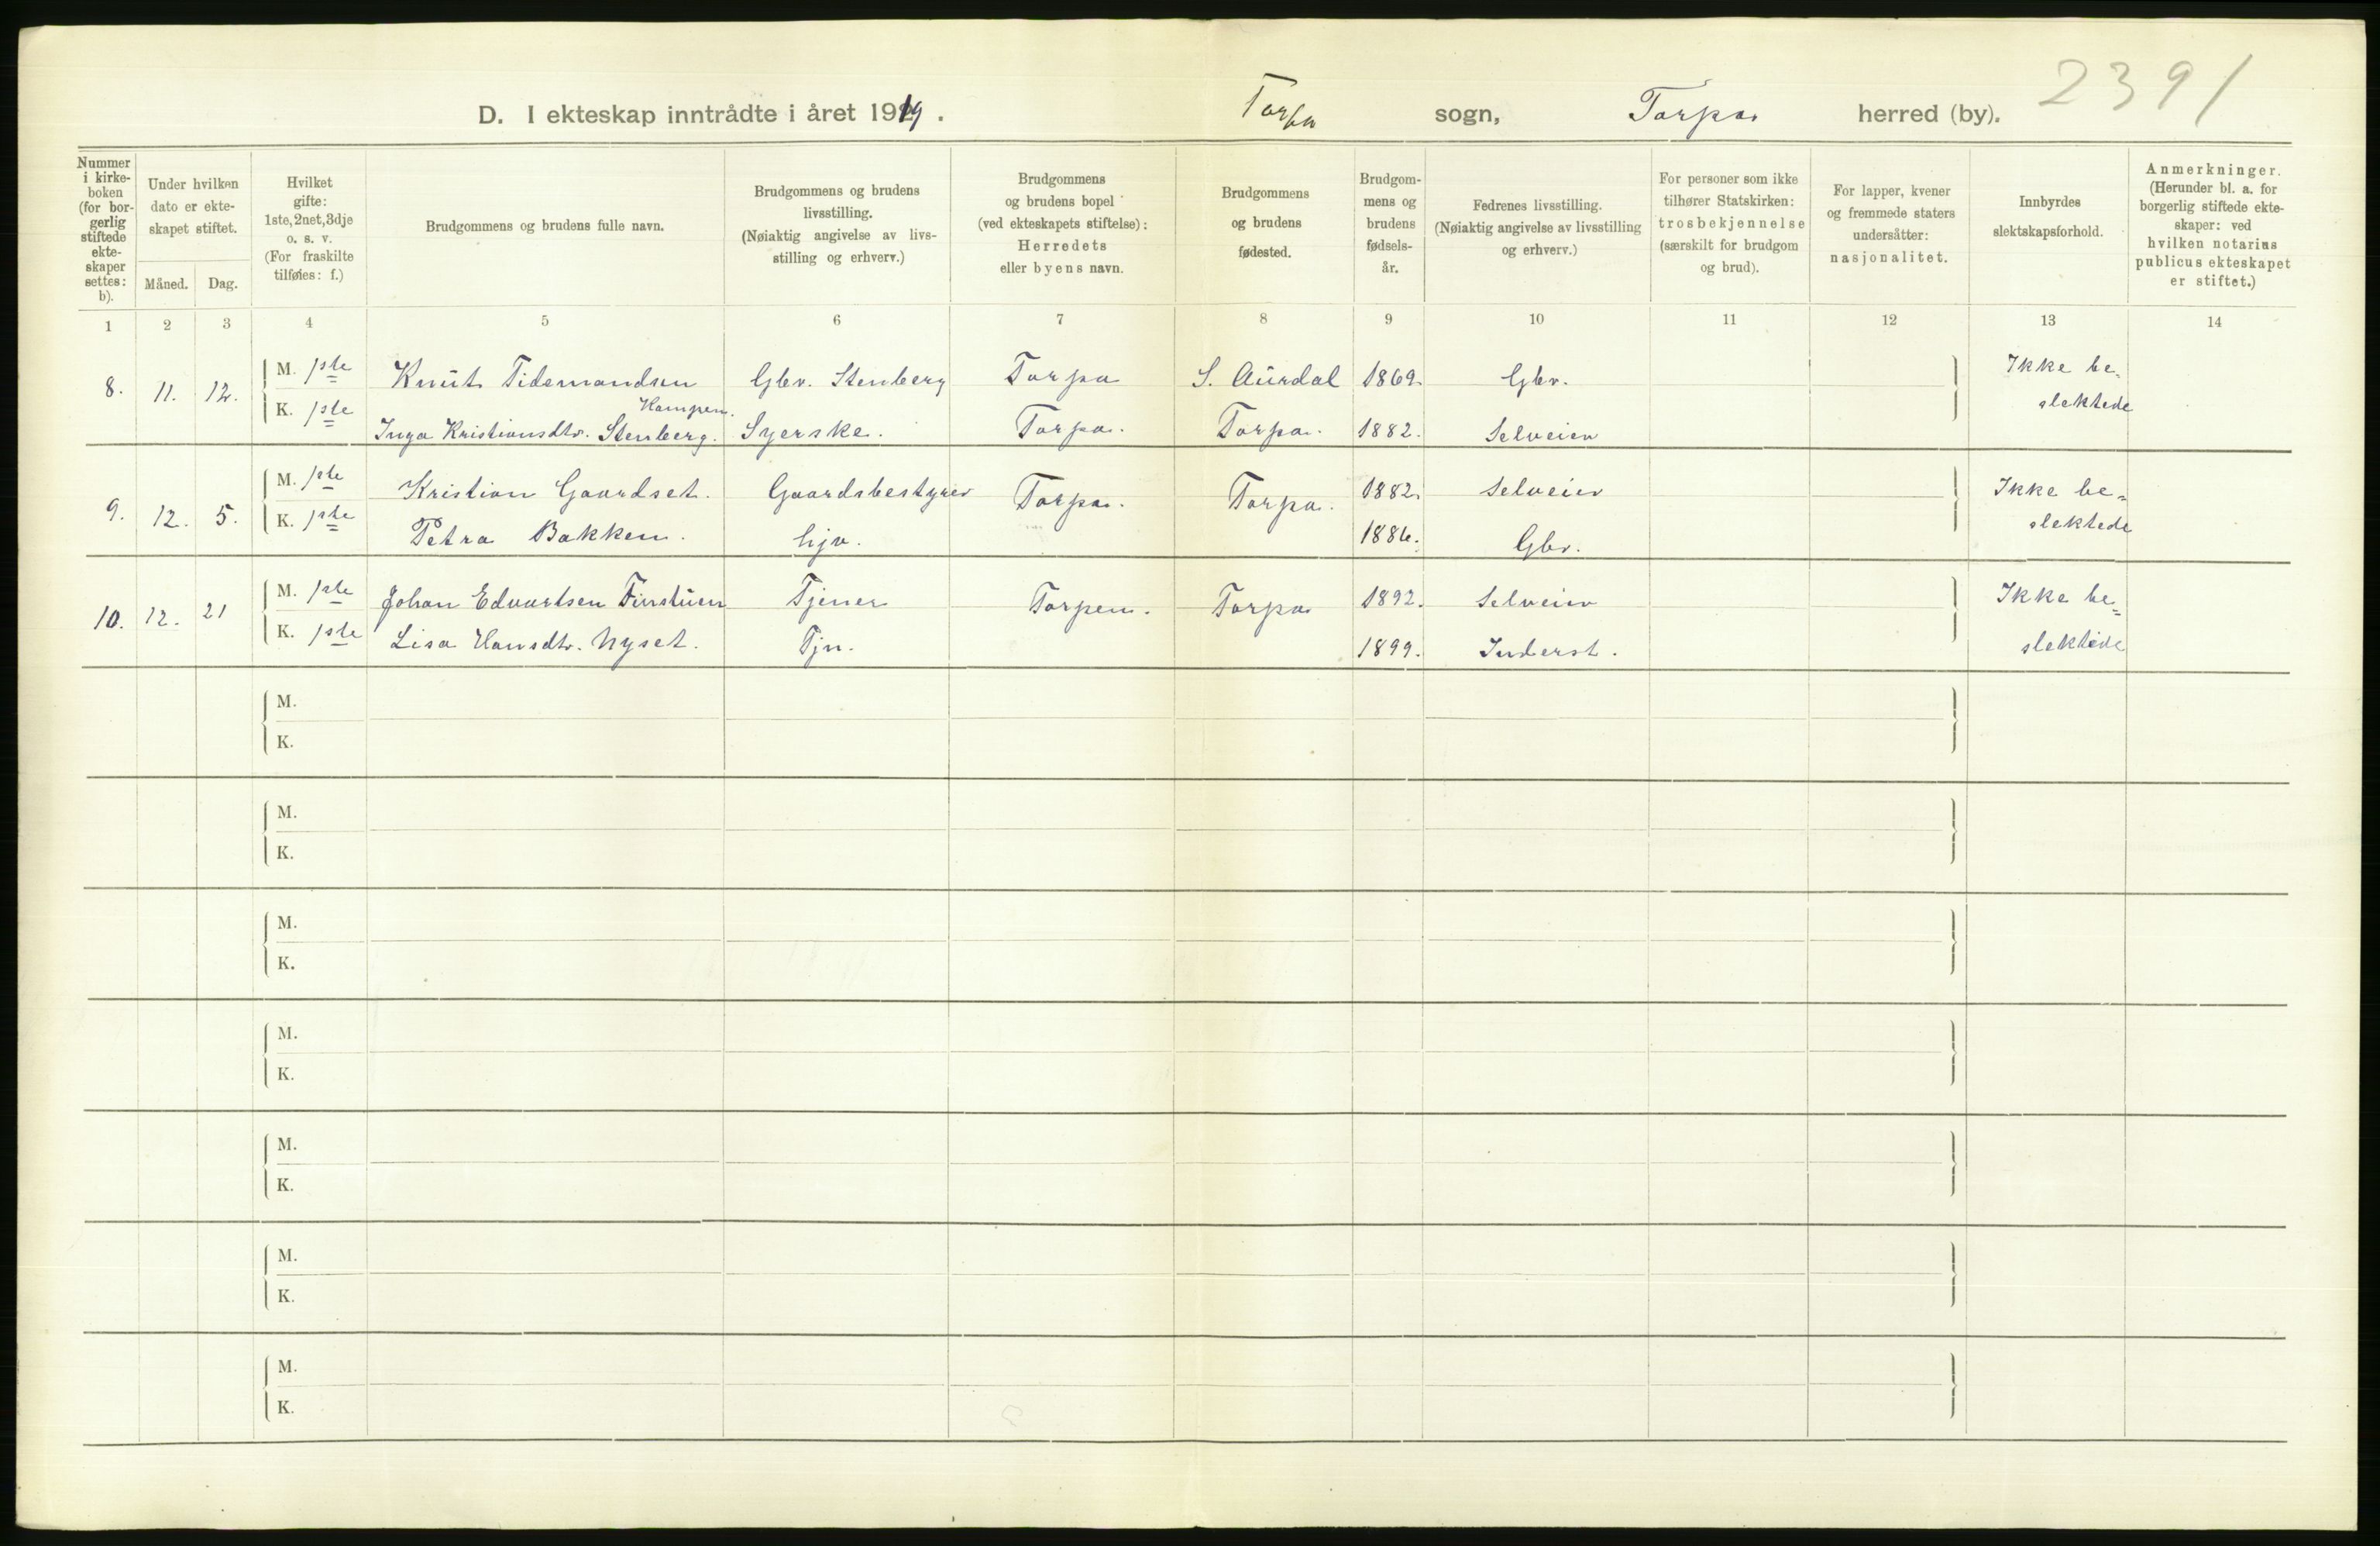 2391
D. I ekteskap inntrådte i året 1919. Torpa sogn, Torpa herred (by).
Nummer i kirkeboken (for borgerlig stiftede ekteskaper settes: b).
Under hvilken dato er ekteskapet stiftet.
Måned. Dag.
Hvilket gifte: 1ste, 2net, 3dje o. s. v. (For fraskilte tilføies: f.)
Brudgommens og brudens fulle navn.
Brudgommens og brudens livsstilling. (Nøiaktig angivelse av livsstilling og erhverv.)
Brudgommens og brudens bopel (ved ekteskapets stiftelse): Herredets eller byens navn.
Brudgommens og brudens fødested.
Brudgommens og brudens fødselsår.
Fedrenes livsstilling. (Nøiaktig angivelse av livsstilling og erhverv.)
For personer som ikke tilhører Statskirken: trosbekjennelse (særskilt for brudgom og brud).
For lapper, kvener og fremmede staters undersåtter: nasjonalitet.
Innbyrdes slektskapsforhold.
Anmerkninger. (Herunder bl. a. for borgerlig stiftede ekteskaper: ved hvilken notarius publicus ekteskapet er stiftet.)
1 2 3 4 5 6 7 8 9 10 11 12 13 14
8. 11. 12. M. 1ste Knut Tidemandsen Gbr. Stenberg Torpa S. Aurdal 1869. Gbr. Ikke be=
K. 1ste Inga Kristiansdtr. Stenberg. Hampen. Syerske. Torpa. Torpa. 1882. Selveier slektede
9. 12. 5. M. 1ste Kristian Gaardset. Gaardsbestyrer Torpa. Torpa. 1882. Selveier Ikke be=
K. 1ste Petra Bakken. hjv. 1886. Gbr. slektede
10. 12. 21 M. 1ste Johan Edvartsen Finstuen Tjener Torpen. Torpa 1892. Selveier Ikke be=
K. 1ste Lisa Hansdtr. Nyset. Tjn. 1899. Inderst. slektede
M.
K.
M.
K.
M.
K.
M.
K.
M.
K.
M.
K.
M.
K.